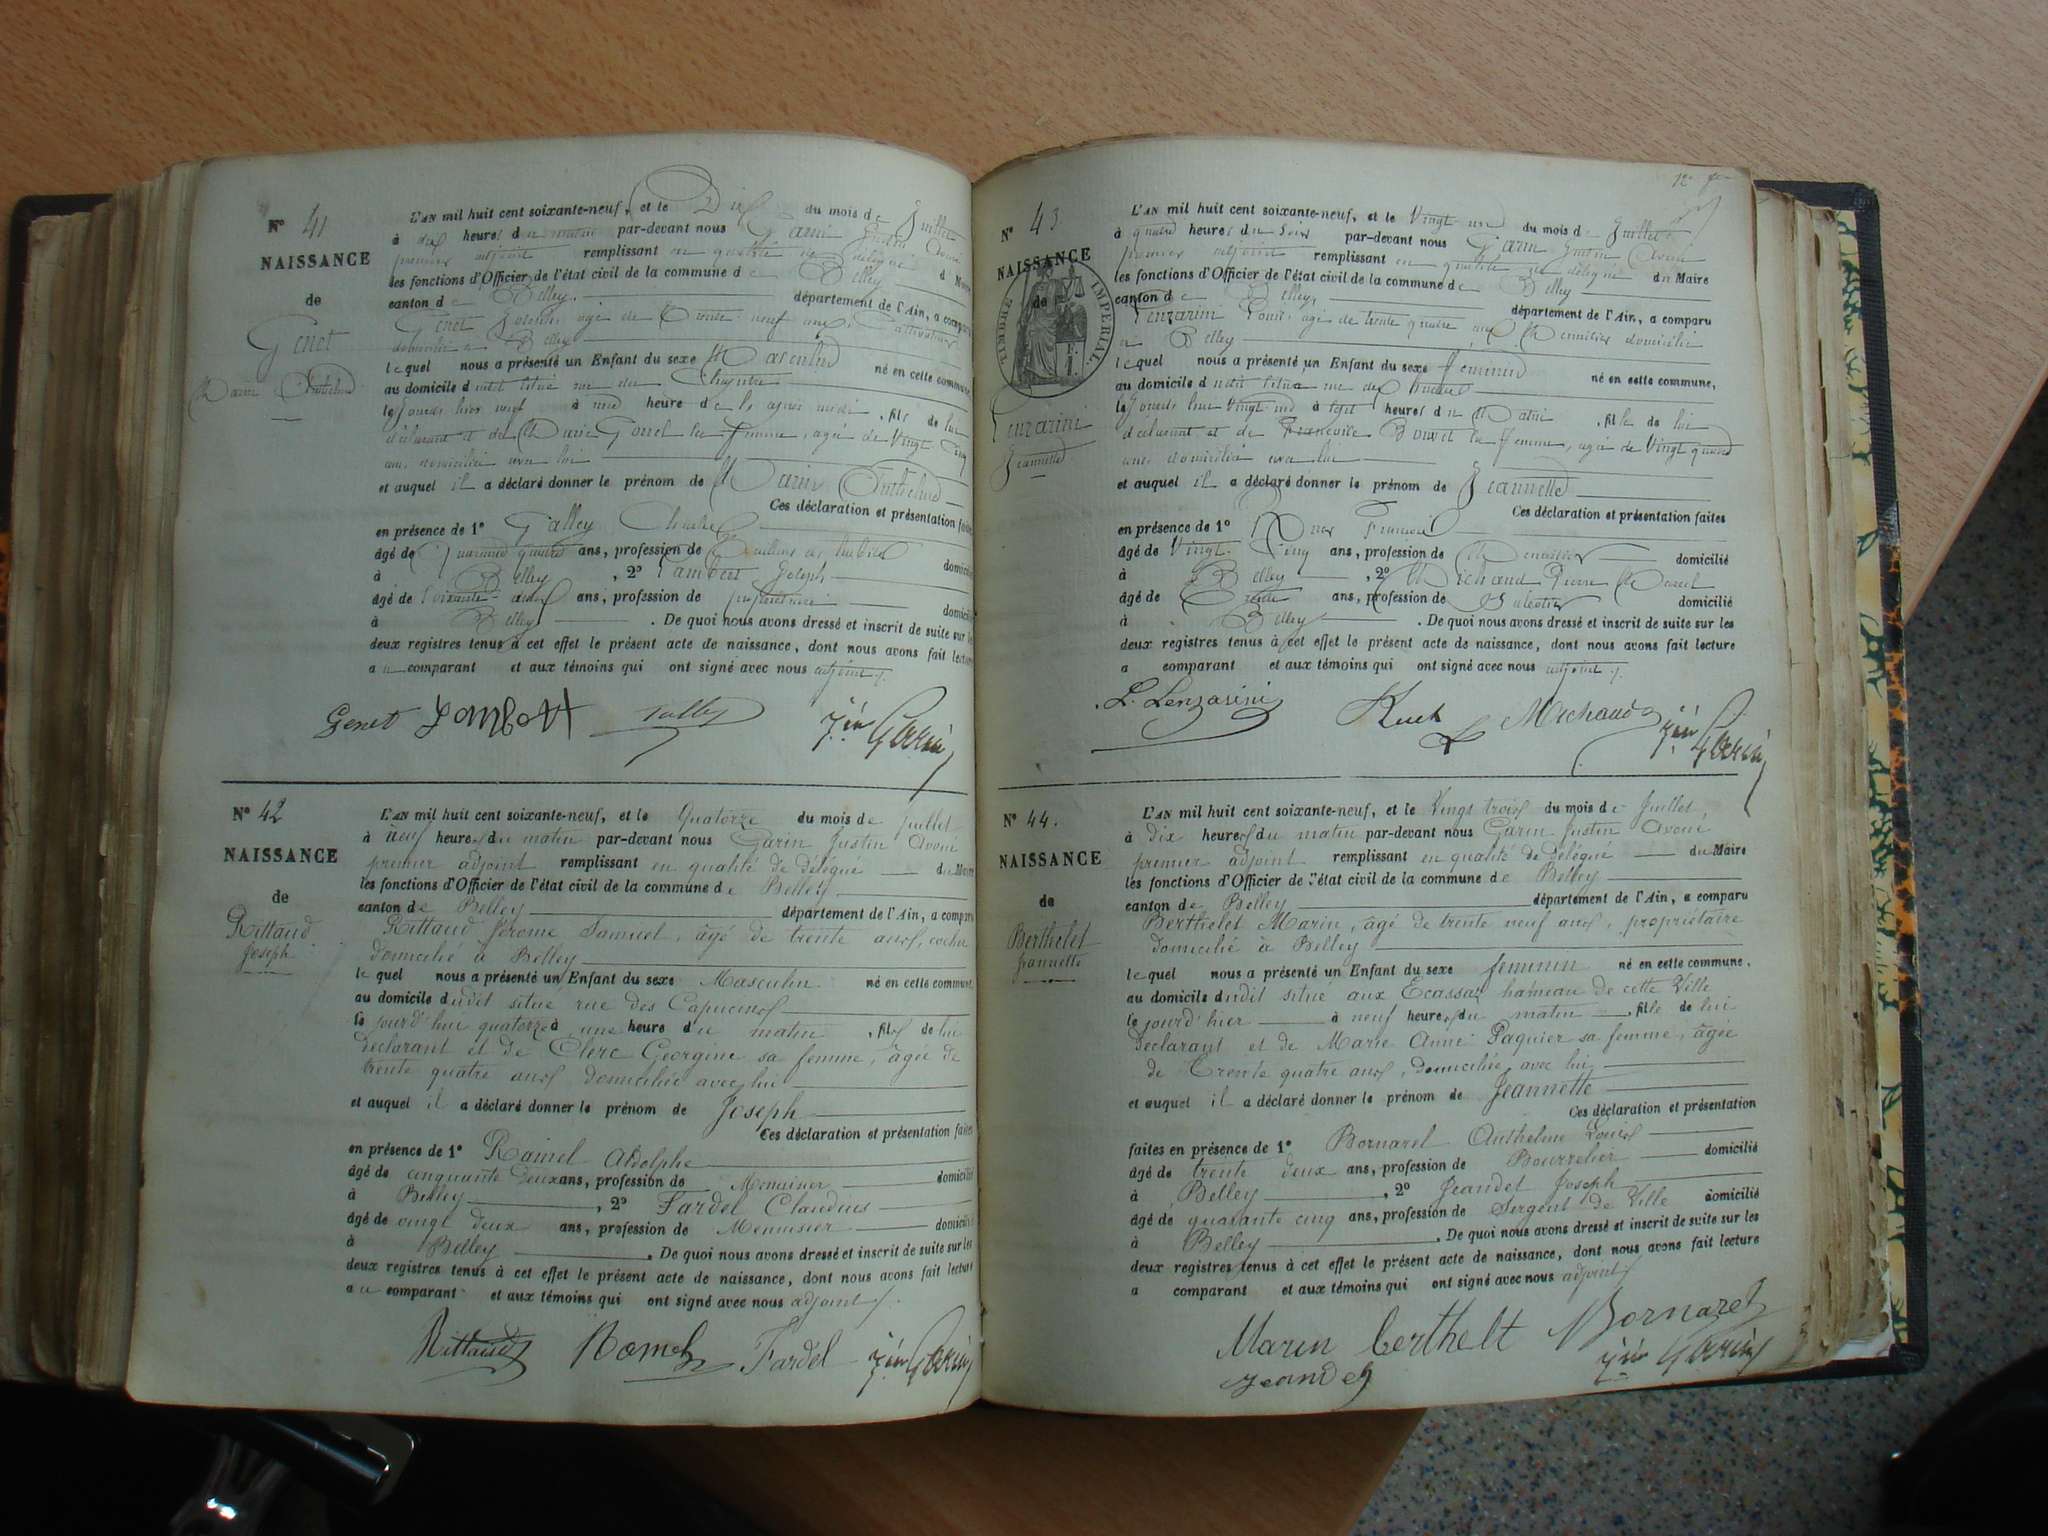 N° 41
NAISSANCE
de
Genet
L'AN mil huit cent soixante-neuf, et le Dix du mois de Juillet
à dix heures du matin par-devant nous Garin Justin Avoué
premier adjoint remplissant en qualité de délégué du Maire
les fonctions d'Officier de l'état civil de la commune de Belley
canton de Belley, département de l'Ain, a comparu
Genet Joseph, agé de trente neuf ans, cultivateur
domicilié à Belley
lequel nous a présenté un Enfant du sexe Masculin né en cette commune,
au domicile dudit situé rue du
le jourd'hier neuf à une heure de l'après midi, fils de lui
déclarant et de Marie sa femme, agée de Vingt Cinq
ans domiciliée avec lui
et auquel il a déclaré donner le prénom de Marin Anthelme
Ces déclaration et présentation faites
en présence de 1° Galley
âgé de Quarante quatre ans, profession de domicilié
à Belley, 2° Lambert Joseph
âgé de soixante ans, profession de propriétaire domicilié
à Belley. De quoi nous avons dressé et inscrit de suite sur les
deux registres tenus à cet effet le présent acte de naissance, dont nous avons fait lecture
au comparant et aux témoins qui ont signé avec nous adjoint
Genet Lambert Galley Jin Garin
N° 42
NAISSANCE
de
Rittaud
Joseph
L'AN mil huit cent soixante-neuf, et le Quatorze du mois de juillet
à neuf heures du matin par-devant nous Garin Justin Avoué
premier adjoint remplissant en qualité de délégué du Maire
les fonctions d'Officier de l'état civil de la commune de Belley
canton de Belley département de l'Ain, a comparu
Rittaud Jérome Samuel, âgé de trente ans, cocher
domicilié à Belley
lequel nous a présenté un Enfant du sexe Masculin né en cette commune,
au domicile dudit situé rue des Capucins
le jourd'hui quatorze à une heure du matin, fils de lui
déclarant et de Clerc Georgine sa femme, âgée de
trente quatre ans domiciliée avec lui
et auquel il a déclaré donner le prénom de Joseph
Ces déclaration et présentation faites
en présence de 1° Ramel Adolphe
âgé de cinquante deux ans, profession de Menuisier domicilié
à Belley, 2° Fardel Claudius
âgé de vingt deux ans, profession de Menuisier domicilié
à Belley. De quoi nous avons dressé et inscrit de suite sur les
deux registres tenus à cet effet le présent acte de naissance, dont nous avons fait lecture
au comparant et aux témoins qui ont signé avec nous adjoint
Rittaud Ramel Fardel Jin Garin
N° 43
NAISSANCE
de
TIMBRE IMPERIAL
Lenzarini
Jeannette
L'AN mil huit cent soixante-neuf, et le Vingt un du mois de Juillet
à quatre heures du soir par-devant nous Garin Justin Avoué
premier adjoint remplissant en qualité de délégué du Maire
les fonctions d'Officier de l'état civil de la commune de Belley
canton de Belley, département de l'Ain, a comparu
Lenzarini Louis, agé de trente quatre ans, Menuisier domicilié
à Belley
lequel nous a présenté un Enfant du sexe Féminin né en cette commune,
au domicile dudit situé rue des
le jourd'hui Vingt un à sept heures du Matin, fille de lui
déclarant et de Bouvet sa femme, agée de Vingt quatre
ans domiciliée avec lui
et auquel il a déclaré donner le prénom de Jeannette
Ces déclaration et présentation faites
en présence de 1°
âgé de Vingt Cinq ans, profession de Menuisier domicilié
à Belley, 2° Michaud Pierre Marcel
âgé de Trente ans, profession de domicilié
à Belley. De quoi nous avons dressé et inscrit de suite sur les
deux registres tenus à cet effet le présent acte de naissance, dont nous avons fait lecture
a comparant et aux témoins qui ont signé avec nous adjoint
L. Lenzarini Michaud Jin Garin
N° 44.
NAISSANCE
de
Berthelet
Jeannette
L'AN mil huit cent soixante-neuf, et le Vingt trois du mois de Juillet
à dix heures du matin par-devant nous Garin Justin Avoué
premier adjoint remplissant en qualité de délégué du Maire
les fonctions d'Officier de l'état civil de la commune de Belley
canton de Belley département de l'Ain, a comparu
Berthelet Marin, âgé de trente neuf ans, propriétaire
domicilié à Belley
lequel nous a présenté un Enfant du sexe féminin né en cette commune,
au domicile dudit situé aux Ecassaz hameau de cette Ville
le jourd'hier à neuf heures du matin, fille de lui
déclarant et de Marie Anne Paquier sa femme, âgée
de Trente quatre ans, domiciliée avec lui
et auquel il a déclaré donner le prénom de Jeannette
Ces déclaration et présentation
faites en présence de 1° Bornarel Anthelme Louis
âgé de trente deux ans, profession de Bourrelier domicilié
à Belley, 2° Jeandet Joseph
âgé de quarante cinq ans, profession de Sergent de Ville domicilié
à Belley. De quoi nous avons dressé et inscrit de suite sur les
deux registres tenus à cet effet le présent acte de naissance, dont nous avons fait lecture
a comparant et aux témoins qui ont signé avec nous adjoint
Marin berthelt Bornarel
Jeandet Jin Garin